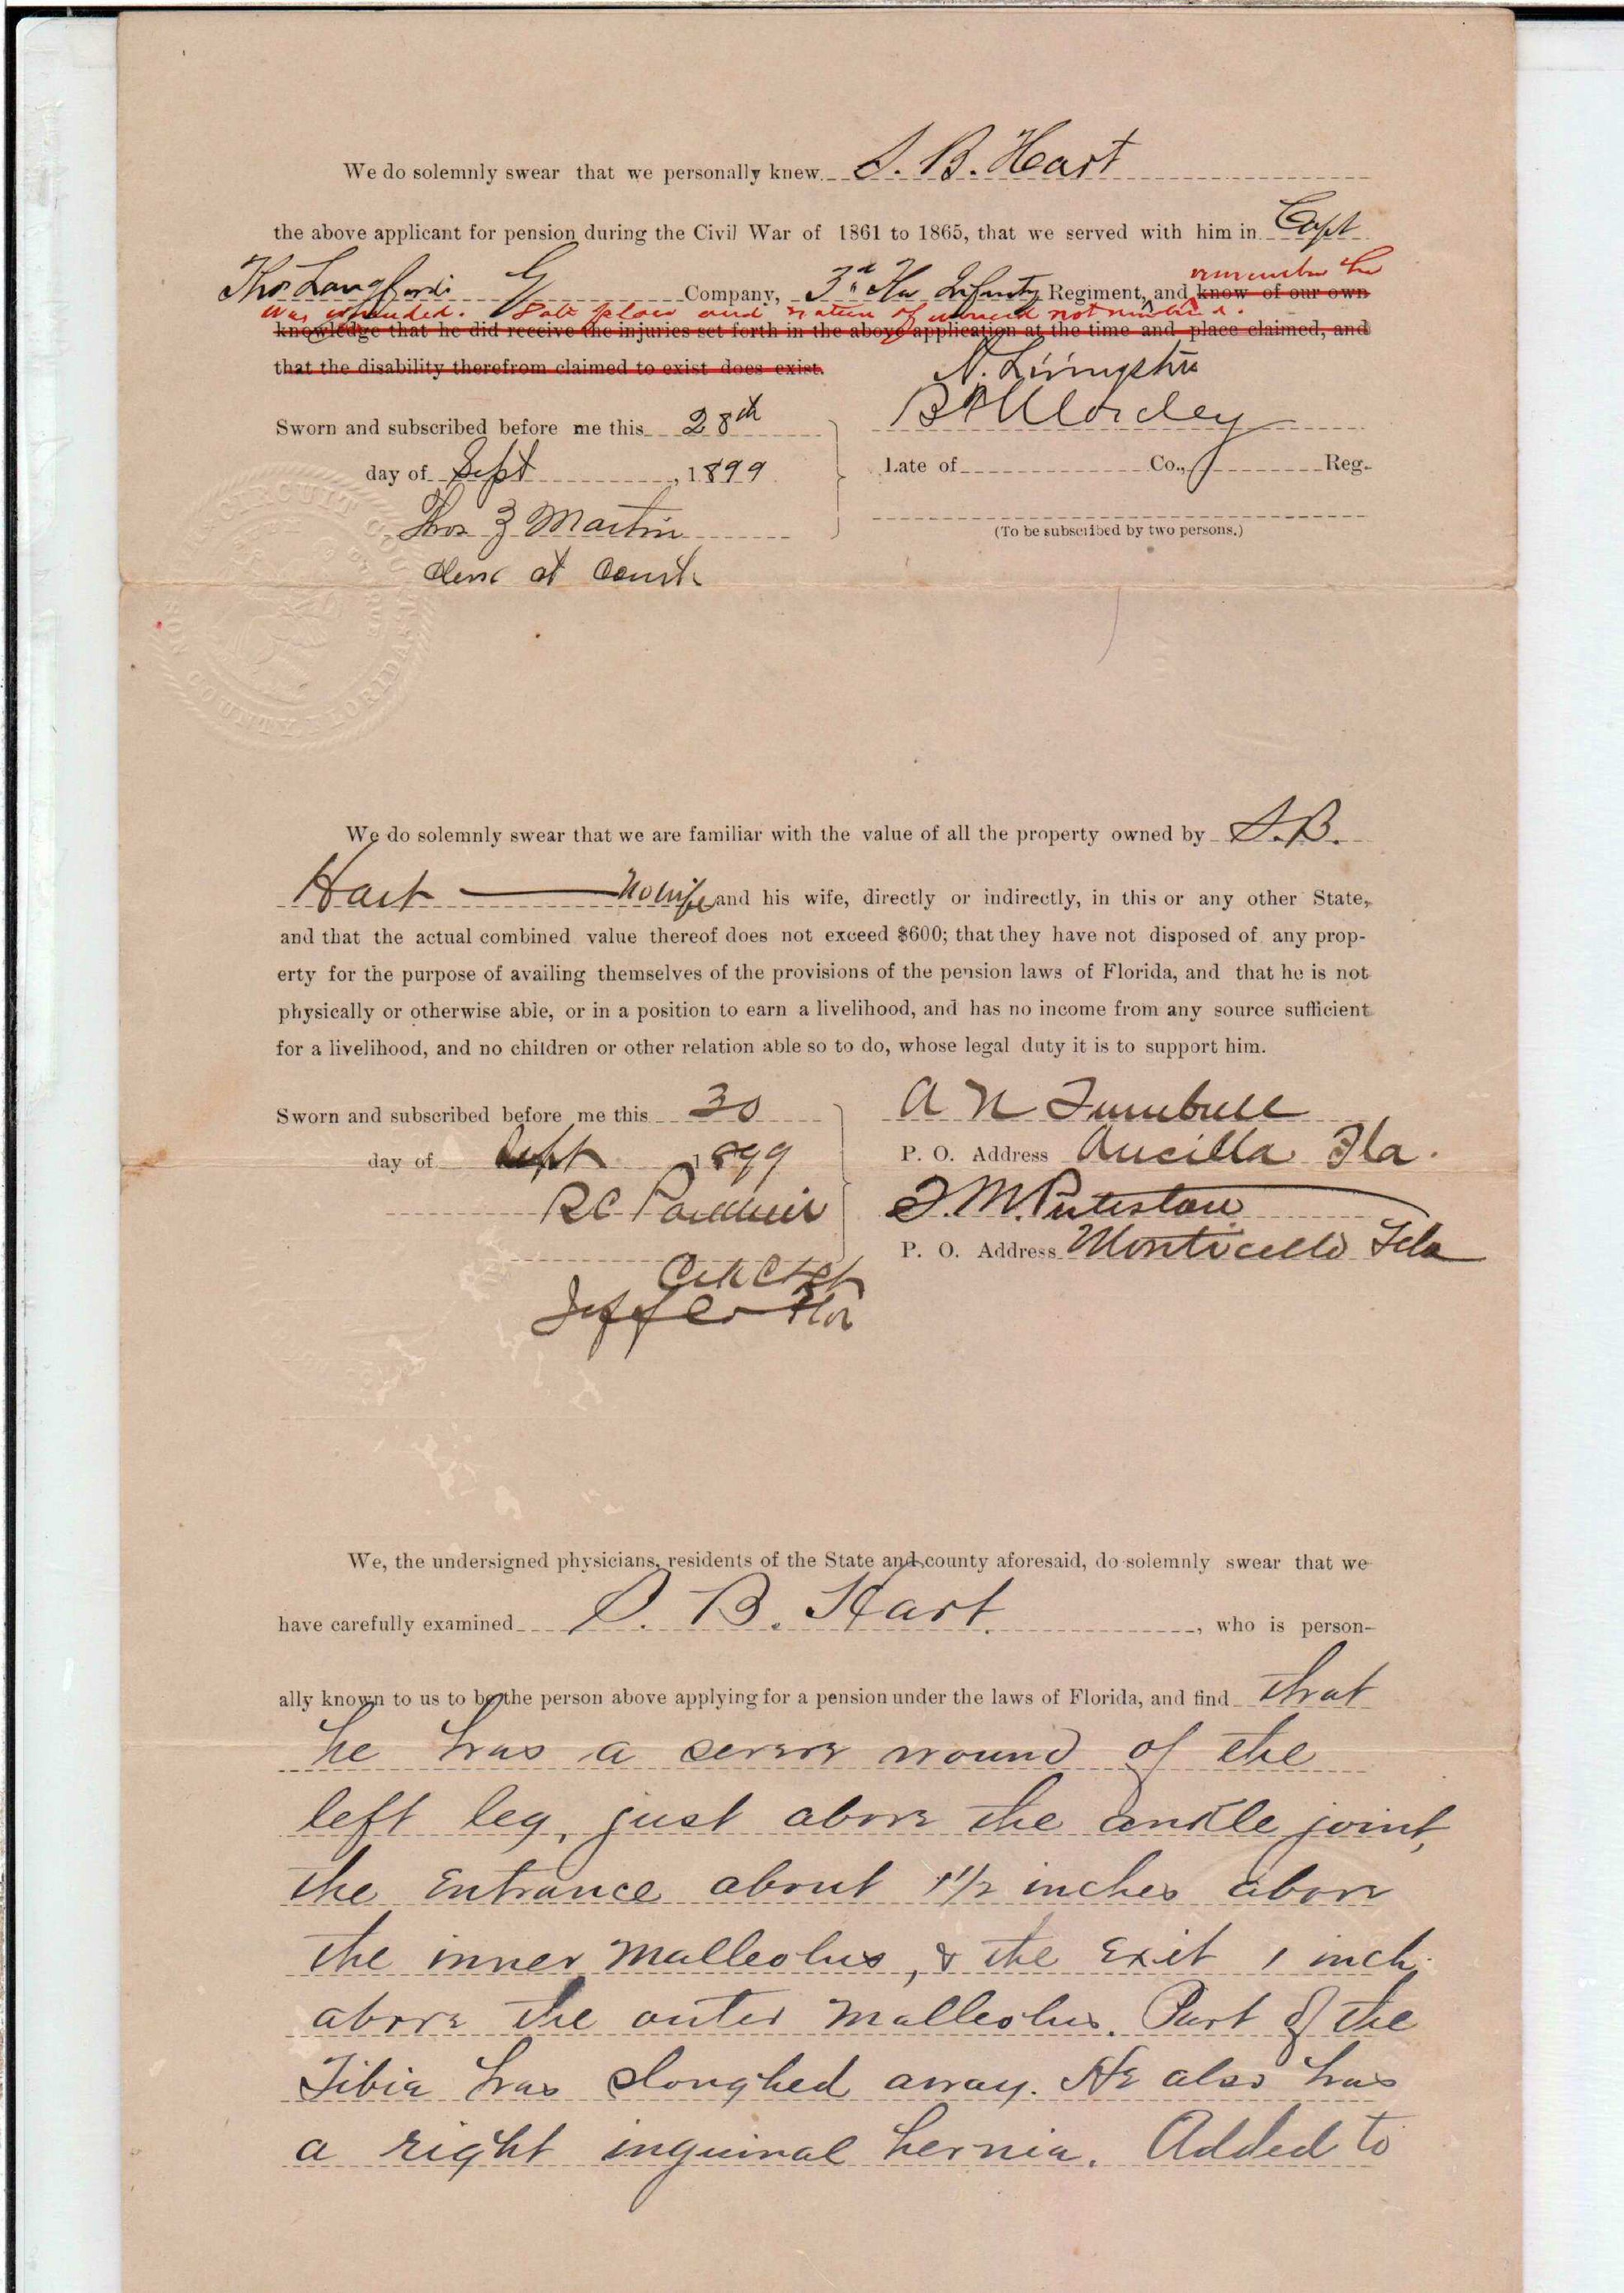 We do solemnly swear that we personally knew S. B. Hart
the above applicant for pension during the Civil War of 1861 to 1865, that we served with him in Capt
Thos Langford G Company, 3rd Fla Infanty Regiment, and know of our own
remember he
was wounded. Date place and nature of wound not
knowledge that he did receive the injuries set forth in the above application at the time and place claimed, and
that the disability therefrom claimed to exist does exist.
N. Livingston
Sworn and subscribed before me this 28th
day of Sept, 1899
Thos Martin
Clerk Court
Late of Co., Reg.
(To be subscribed by two persons.)
CIRCUIT COURT
COUNTY FLORIDA
We do solemnly swear that we are familiar with the value of all the property owned by S. B.
Hart — No wife and his wife, directly or indirectly, in this or any other State,
and that the actual combined value thereof does not exceed $600; that they have not disposed of any prop-
erty for the purpose of availing themselves of the provisions of the pension laws of Florida, and that he is not
physically or otherwise able, or in a position to earn a livelihood, and has no income from any source sufficient
for a livelihood, and no children or other relation able so to do, whose legal duty it is to support him.
Sworn and subscribed before me this 30
day of Sept 1899
A N Turnbull
P. O. Address Aucilla Fla.
T. M. Puleston
P. O. Address Monticello Fla
We, the undersigned physicians, residents of the State and county aforesaid, do solemnly swear that we
have carefully examined S. B. Hart, who is person-
ally known to us to be the person above applying for a pension under the laws of Florida, and find that
he has a severe wound of the
left leg, just above the ankle joint,
the Entrance about 1 1/2 inches above
the inner Malleolus, & the Exit 1 inch
above the outer Malleolus. Part of the
Tibia has sloughed away. He also has
a right inguinal hernia. Added to